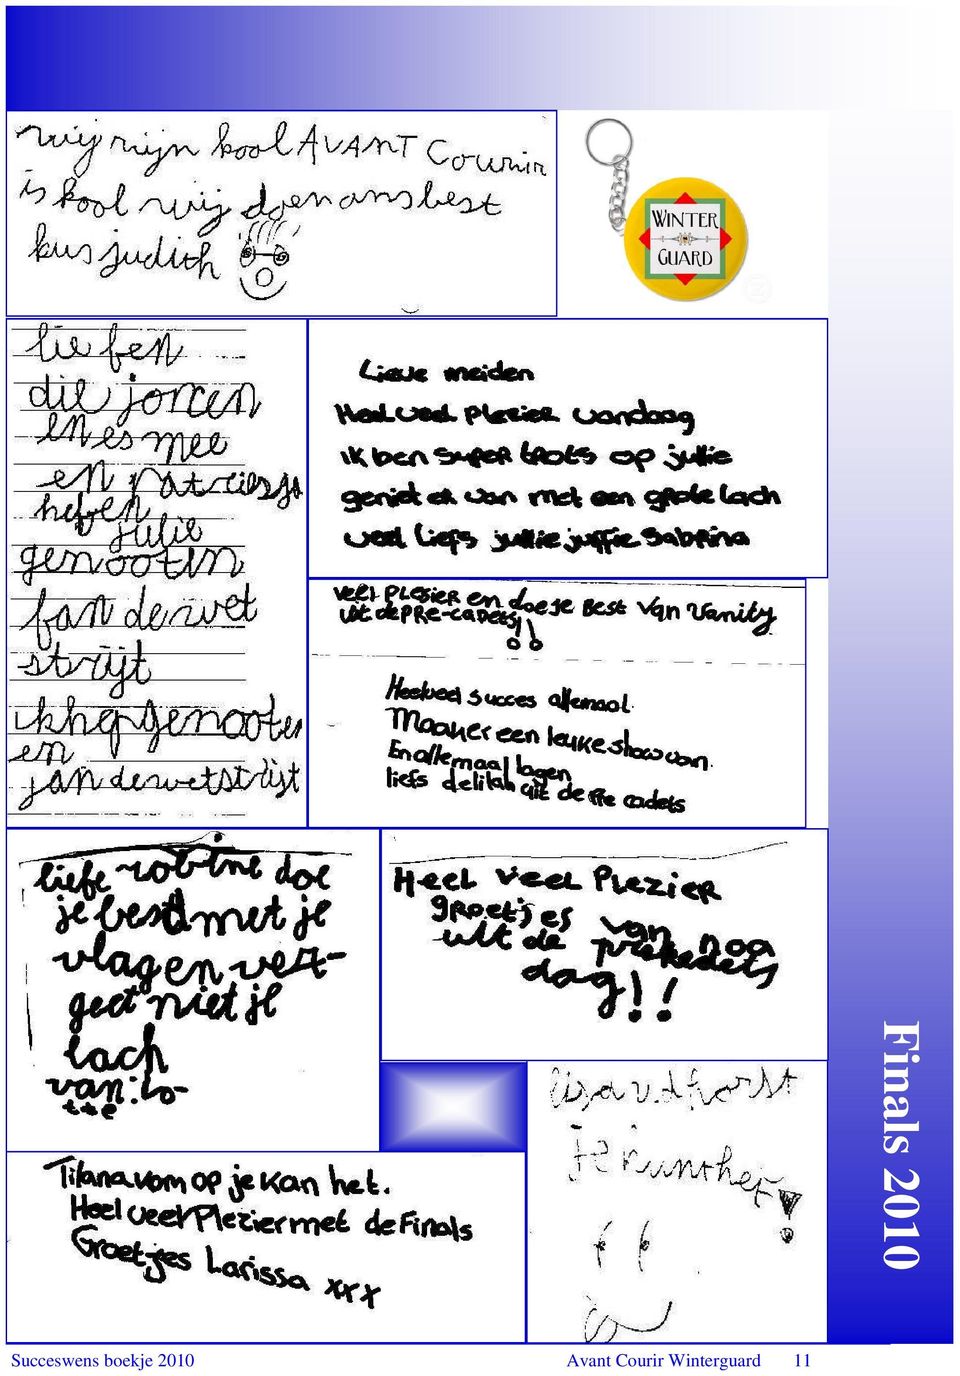 wij rijn kool AVANT Courir
is kool wij doen ons best
kus judith
WINTER
GUARD
lie fen
die joreen
en es mee
en patriesja
hefen
julie
genooten
fan de wet
strijt
ik hep genooten
en
fan de wetstrijt
Lieve meiden
Heel veel plezier vandaag
ik ben super trots op jullie
geniet er van met een grote lach
veel liefs jullie juffie Sabrina
Veel PLEZIER en doe je Best van Vanity
uit de PRE-cadets!!
Heel veel succes allemaal.
Maak er een leuke show van.
En allemaal lagen
liefs delilah uit de Pre cadets
liefe robine doe
je best met je
vlagen ver-
geet niet je
lach
van: lo-
tte
Heel veel Plezier
groetjes van noa
uit de prekedets
dag!!
lisa v.d horst
je kunt het!
Titana vom op je kan het.
Heel veel Plezier met de Finals
Groetjes Larissa xxx
Finals 2010
Succeswens boekje 2010
Avant Courir Winterguard 11